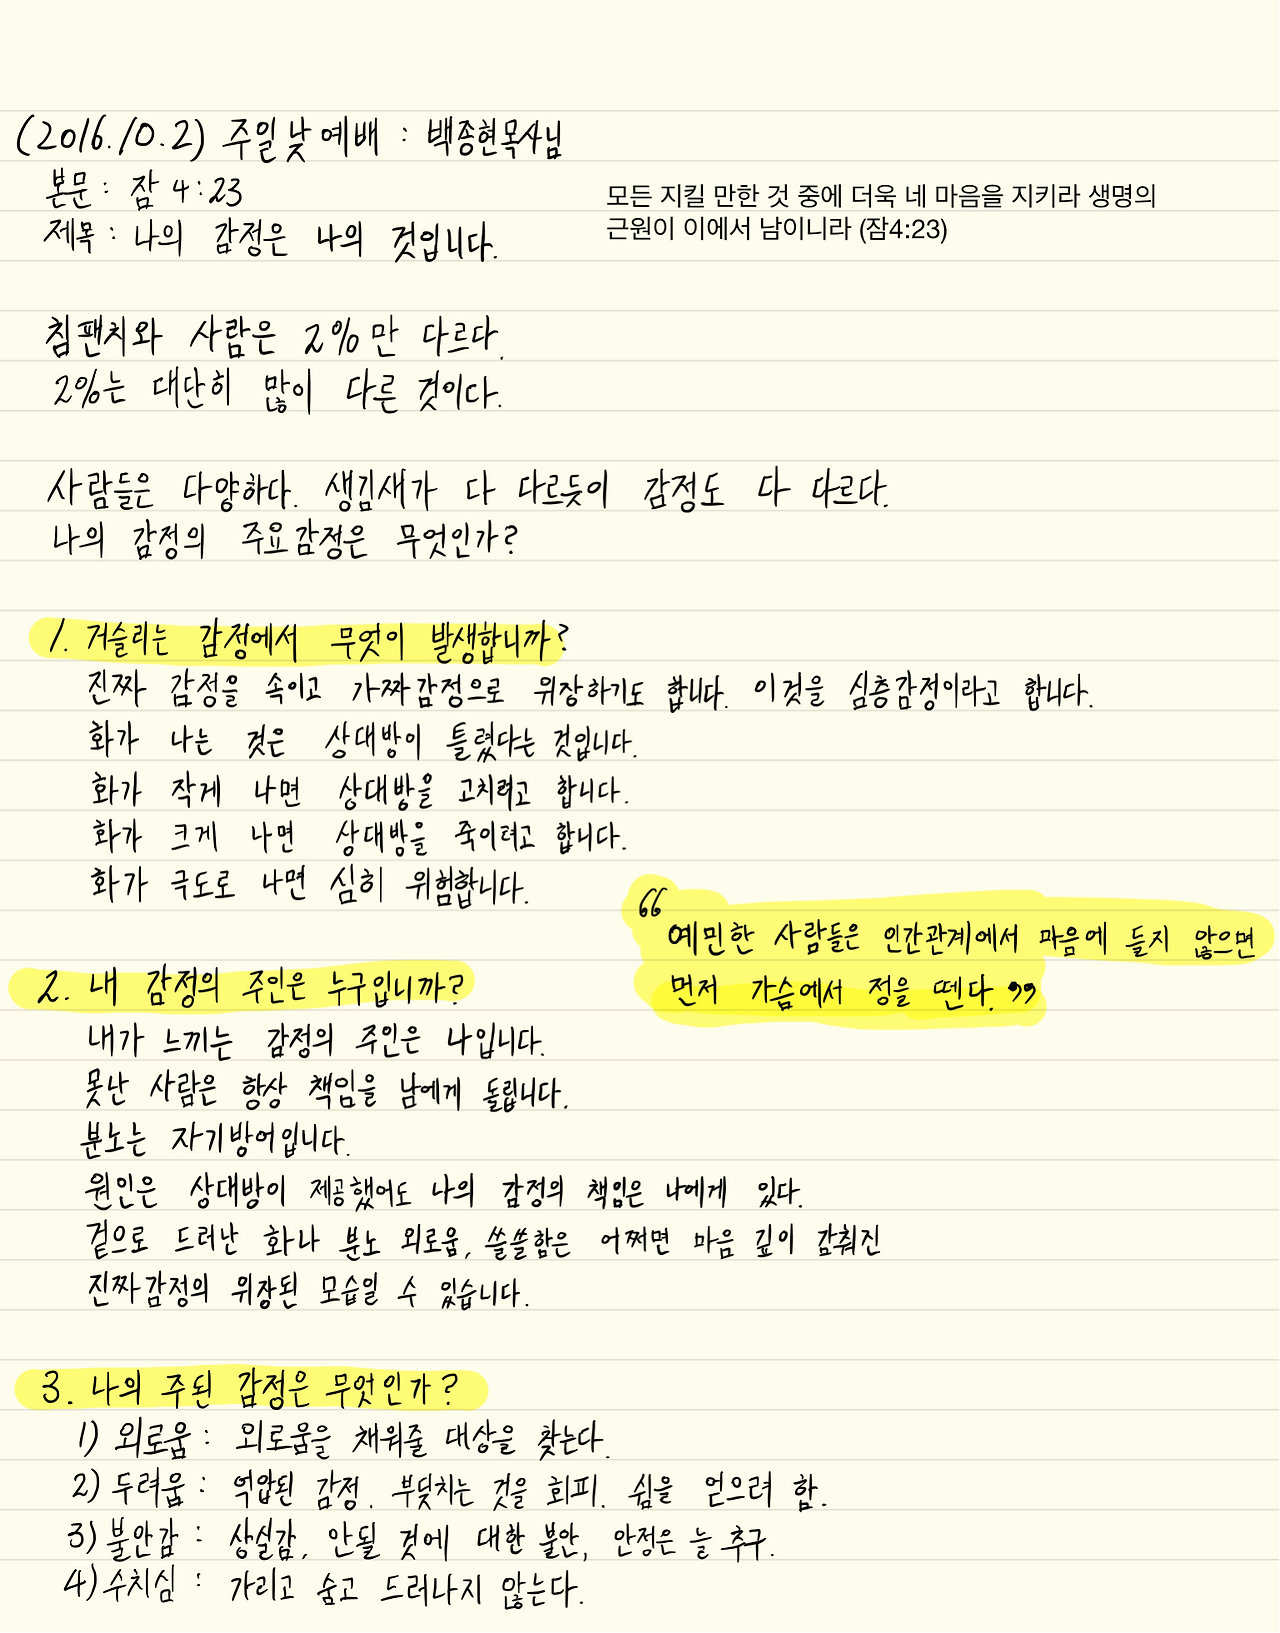 (2016.10.2) 주일낮예배 : 백종현목사님
본문 : 잠 4:23
제목 : 나의 감정은 나의 것입니다.
모든 지킬 만한 것 중에 더욱 네 마음을 지키라 생명의
근원이 이에서 남이니라 (잠4:23)
침팬치와 사람은 2%만 다르다.
2%는 대단히 많이 다른 것이다.
사람들은 다양하다. 생김새가 다 다르듯이 감정도 다 다르다.
나의 감정의 주요감정은 무엇인가?
1. 거슬리는 감정에서 무엇이 발생합니까?
진짜 감정을 속이고 가짜감정으로 위장하기도 합니다. 이것을 심층감정이라고 합니다.
화가 나는 것은 상대방이 틀렸다는 것입니다.
화가 작게 나면 상대방을 고치려고 합니다.
화가 크게 나면 상대방을 죽이려고 합니다.
화가 극도로 나면 심히 위험합니다.
“예민한 사람들은 인간관계에서 마음에 들지 않으면
먼저 가슴에서 정을 뗀다.”
2. 내 감정의 주인은 누구입니까?
내가 느끼는 감정의 주인은 나입니다.
못난 사람은 항상 책임을 남에게 돌립니다.
분노는 자기방어입니다.
원인은 상대방이 제공했어도 나의 감정의 책임은 나에게 있다.
겉으로 드러난 화나 분노 외로움, 쓸쓸함은 어쩌면 마음 깊이 감춰진
진짜감정의 위장된 모습일 수 있습니다.
3. 나의 주된 감정은 무엇인가?
1) 외로움 : 외로움을 채워줄 대상을 찾는다.
2) 두려움 : 억압된 감정. 부딪치는 것을 회피. 쉼을 얻으려 함.
3) 불안감 : 상실감, 안될 것에 대한 불안, 안정은 늘 추구.
4) 수치심 : 가리고 숨고 드러나지 않는다.